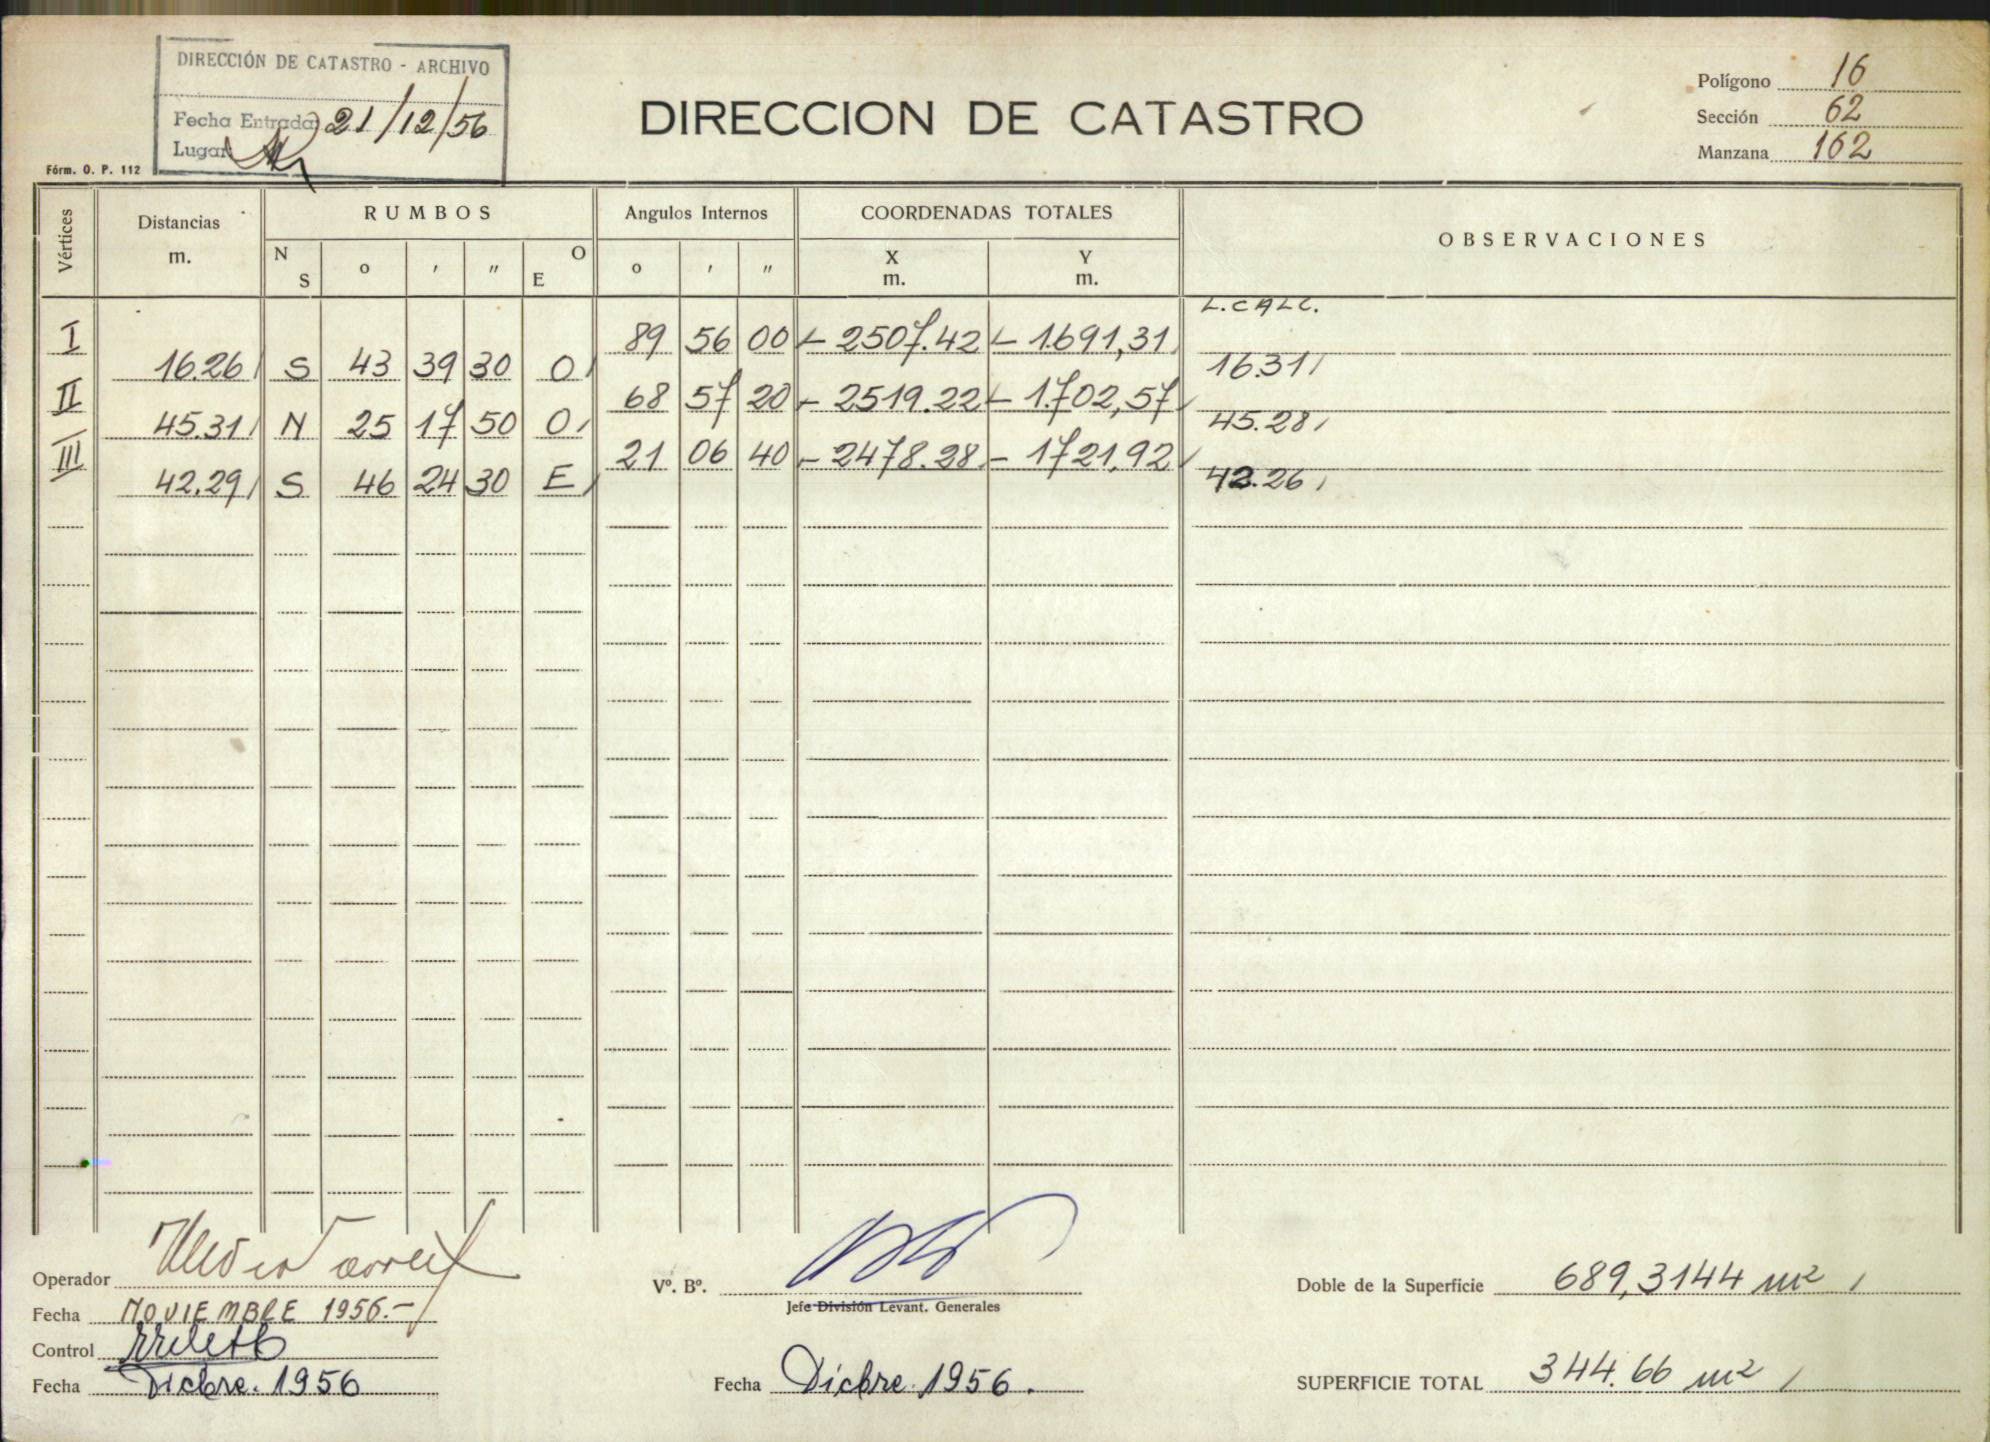 DIRECCIÓN DE CATASTRO - ARCHIVO
Fecha Entrada 21/12/56
Lugar
Fórm. O. P. 112
DIRECCION DE CATASTRO
Polígono 16
Sección 62
Manzana 162
Vértices
Distancias
m.
RUMBOS
N
S
o
'
"
O
E
Angulos Internos
o
'
"
COORDENADAS TOTALES
X
m.
Y
m.
OBSERVACIONES
L.CALC.
I 89 56 00 - 2507.42 - 1691,31
16.26 S 43 39 30 O 16.31
II 68 57 20 - 2519.22 - 1702,57
45.31 N 25 17 50 O 45.28
III 21 06 40 - 2478.28 - 1721,92
42.29 S 46 24 30 E 42.26
Operador
Fecha NOVIEMBRE 1956.-
Control
Fecha Dicbre. 1956
Vº. Bº.
Jefe División Levant. Generales
Fecha Dicbre. 1956.
Doble de la Superficie 689,3144 m2
SUPERFICIE TOTAL 344.66 m2